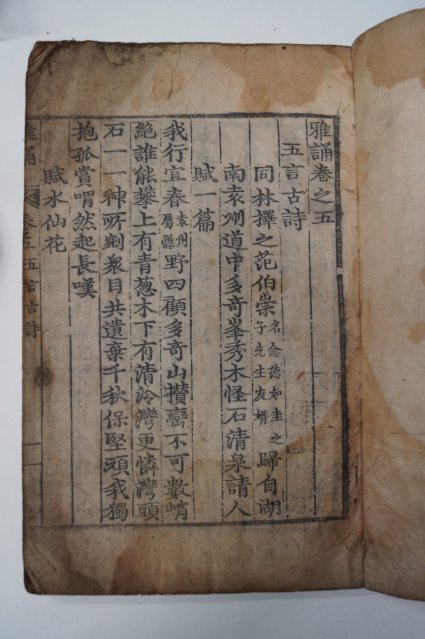 雅誦卷之五
五言古詩
同林擇之范伯崇名念德如圭之子先生友壻歸自湖
南袁州道中多奇峯秀木怪石清泉請人
賦一篇
我行宜春袁州屬縣野四顧多奇山攅巒不可數峭
絕誰能攀上有青葱木下有清泠灣更憐灣頭
石一一神所剜衆目共遺棄千秋保堅頑我獨
抱孤賞喟然起長嘆
賦水仙花
雅誦 卷五 五言古詩 一